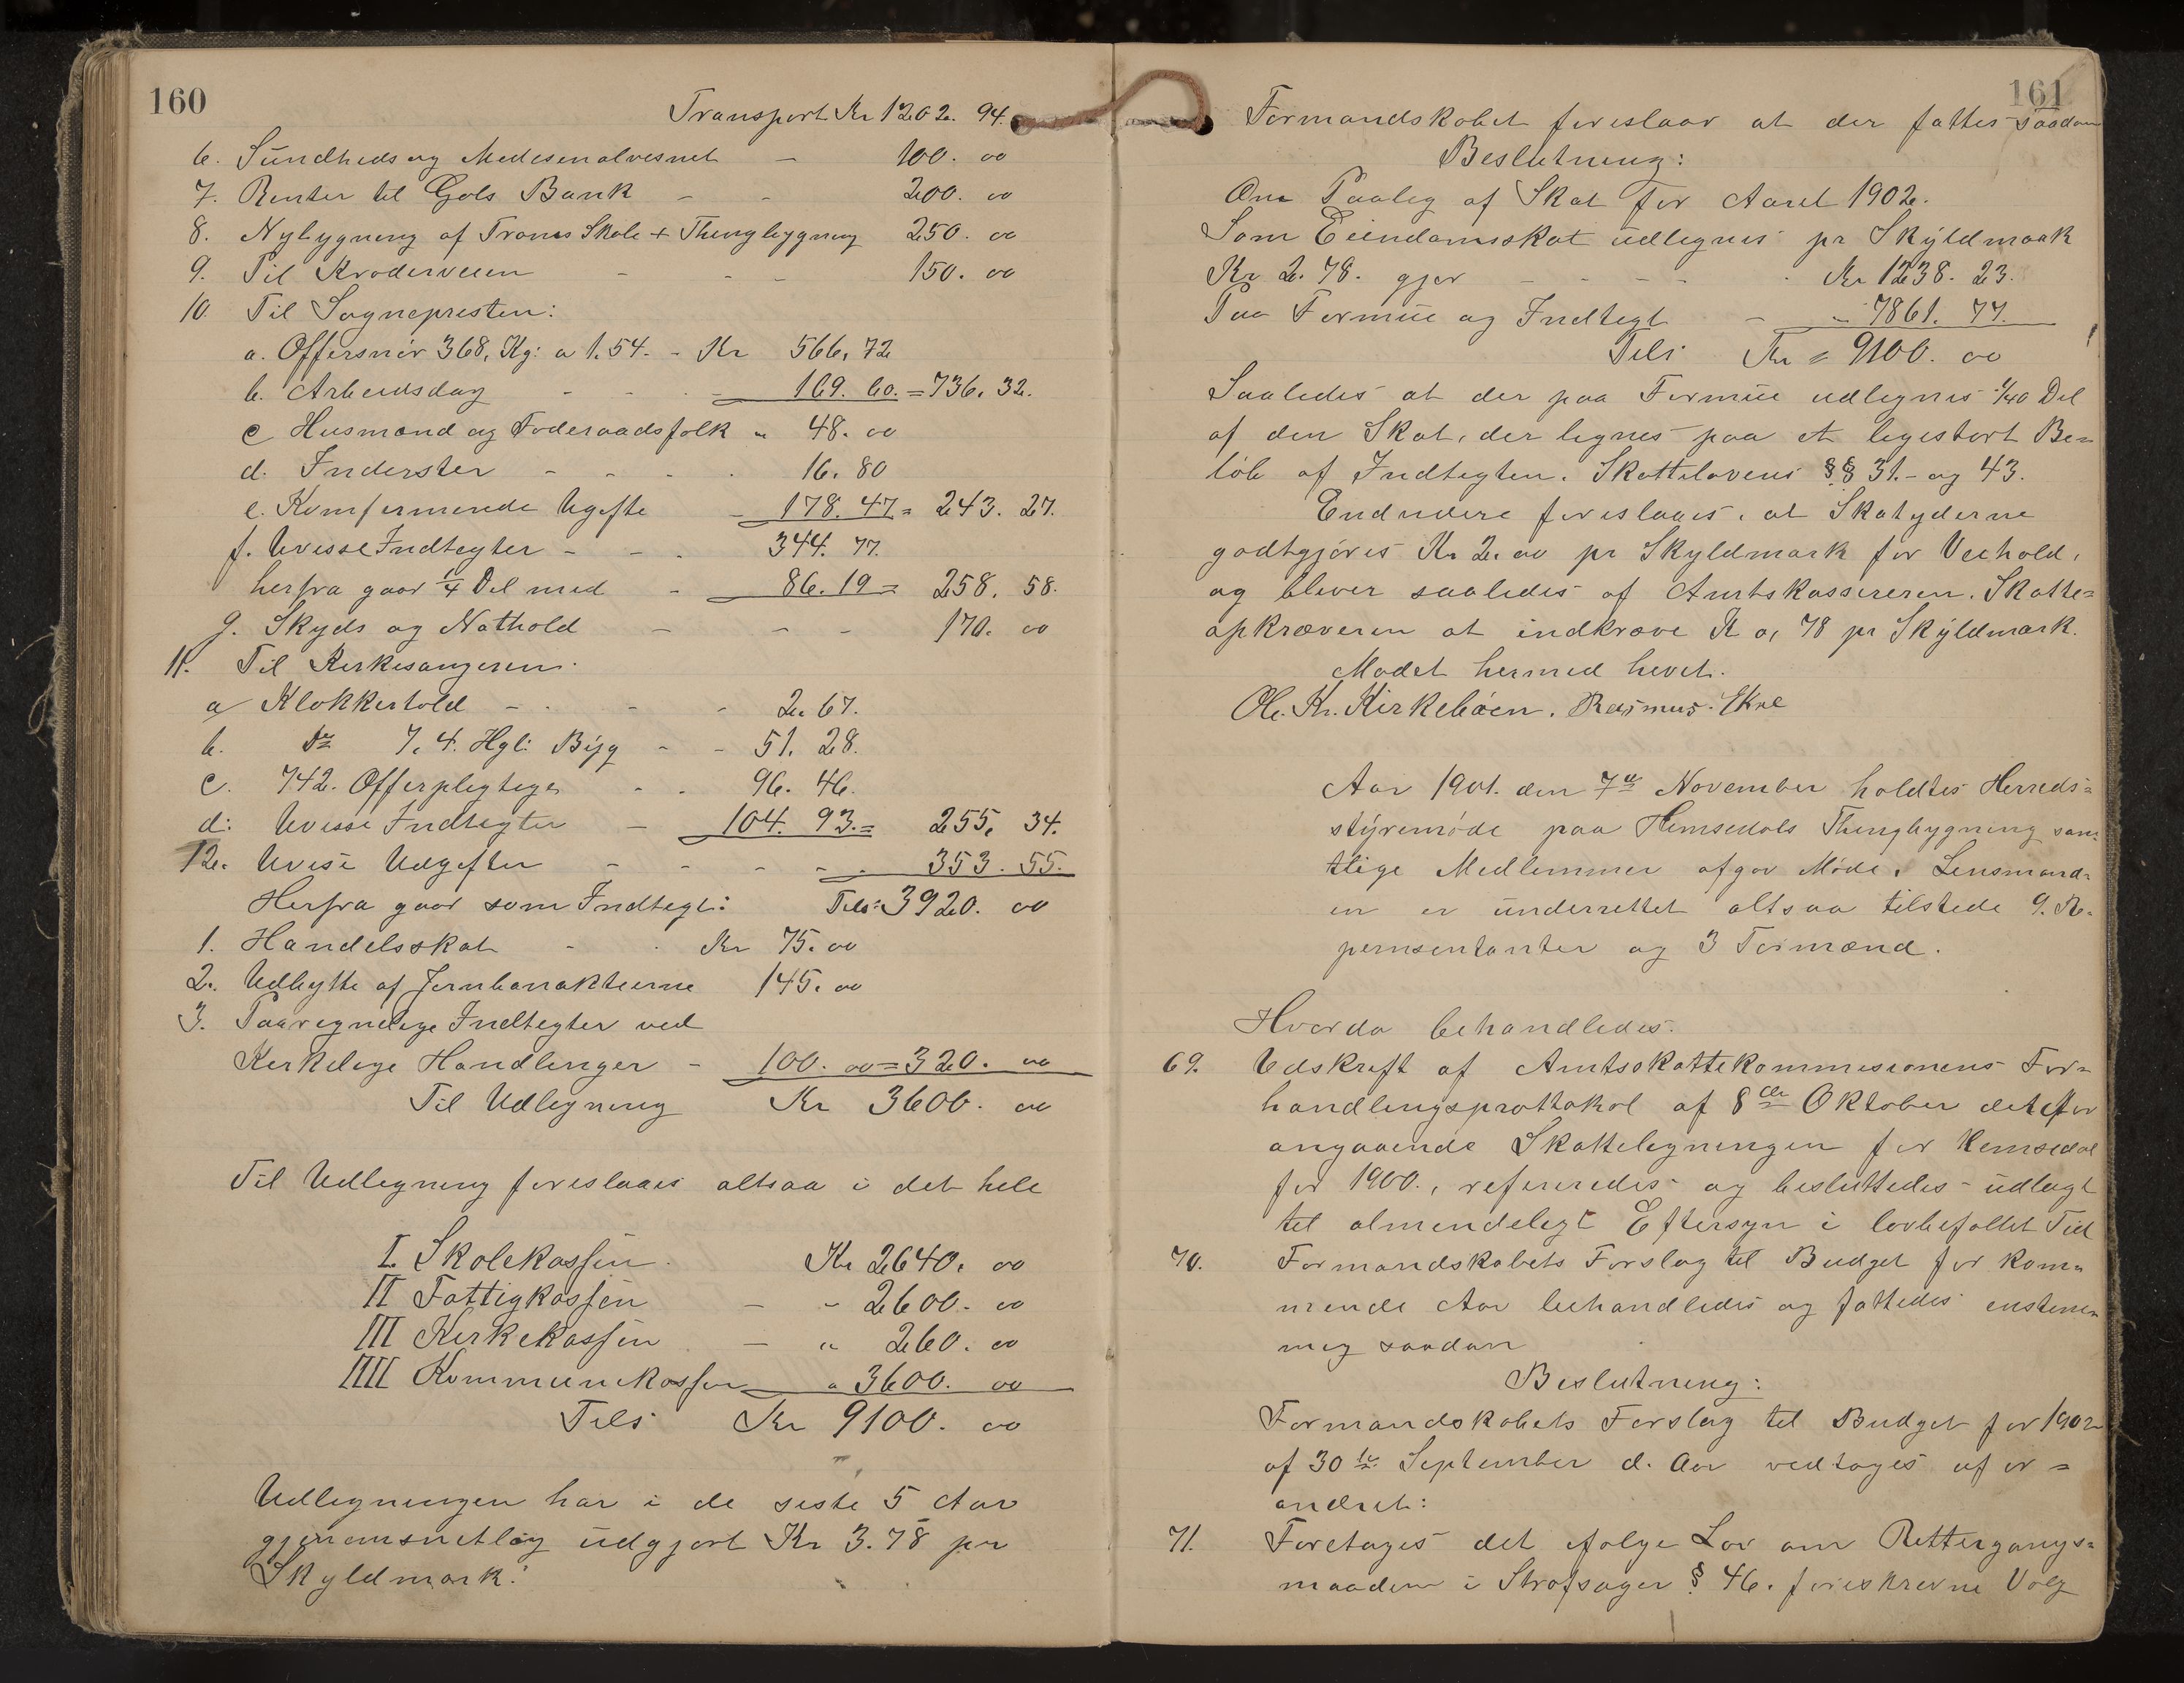 160
Transport Kr 1202. 94.
6. Sundheds og Medesenalvesnet - 100. 00
7. Renter til Gols Bank - - 200. 00
8. Nybygning af Troms Skole + Thingbygning 250. 00
9. Til Kroderveien - - - 150. 00
10. Til Sognepresten:
a. Offersmör 368, Kg: a 1.54. - Kr 566, 72
b. Arbeidsdag - - - 169. 60. = 736, 32.
c Husmænd og Foderaadsfolk " 48. 00
d. Inderster - - - . 16. 80
e. Komfermende Ugefte - 178. 47 = 243. 27.
f. Uvisse Indtegter - - . 344. 77.
herfra gaar 1/4 Del med - 86. 19 = 258. 58.
g. Skyds og Nathold - - - 170. 00
11. Til Kerkesangeren.
a Klokkertold - . - - 2. 67.
b. do 7, 4. Hgl: Byg - - 51. 28.
c. 742. Offerplegtege - . 96. 46.
d: Uvisse Indtegter - 104. 93. = 255, 34.
12. Uvise Udgefter - - - - . 353. 55.
Herfra gaar som Indtegt: Tils: 3920. 00
1. Handelsskat - . Kr 75. 00
2. Udbytte af Jernbaneakteerne 145. 00
3. Paaregnelege Indtegter ved
Kerkelege Handlenger - 100. 00 = 320. 00
Til Udlegning Kr 3600. 00
Til Udlegning foreslaaes altsaa i det hele
I. Skolekassen. Kr 2640. 00
II Fattigkassen - - 2600. 00
III Kerkekassen - " 260. 00
IIII Kommunekassen " 3600. 00
Tils Kr 9100. 00
Udlegningen har i de seste 5 Aar
gjenemsnetleg udgjort Kr 3.78 per
Skyldmark.
161
Formandskabet foreslaar at der fattes saadan
Beslutning:
Om Paaleg af Skat for Aaret 1902.
Som Eiendomsskat udlegnes pr Skyldmark
Kr 2. 78. gjør - - - - . Kr 1238. 23.
Paa Formue og Indtegt - " 7861. 77.
Tils Kr = 9100. 00
Saaledes at der paa Formue udlegnes 1/40 Del
af den Skat, der legnes paa et legestort Be=
löb af Indtegten. Skattelovens §§ 31.- og 43.
Endvidere foreslaaes, at Skatyderne
godtgjöres Kr 2. 00 pr Skyldmark for Veehold,
og blever saaledes af Amtskassereren. Skatte=
opkræveren at indkræve K 0, 78 pr Skyldmark.
Mødet hermed hevet.
Ole. Kr. Kirkebøen. Rasmus. Ekre
Aar 1901. den 7de November holdtes Herreds=
styremöde paa Hemsedals Thingbygning sam=
tlige Medlemmer afgav Møde. Lensmand=
en er underrettet altsaa tilstede 9. Re=
persentanter og 3 Formænd.
Hvorda behandledes.
69. Udskreft af Amtsskattekommesionens For=
handlingsprottokol af 8de Oktober dette Aar
angaaende Skattelegningen for Hemsedal
for 1900., refereredes og besluttedes udlagt
til almendelegt Eftersyn i lovbefallet Tid
70. Formandskabets Forslag til Budget for kom=
mende Aar behandledes og fattedes enstem
meg saadan
Beslutning:
Formandskabets Forslag til Budget for 1902
af 30te September d. Aar vedtages uforandret:
71. Foretages det efølge Lov om Rettergangs=
maaden i Strafsager § 46. foreskrevne Valg